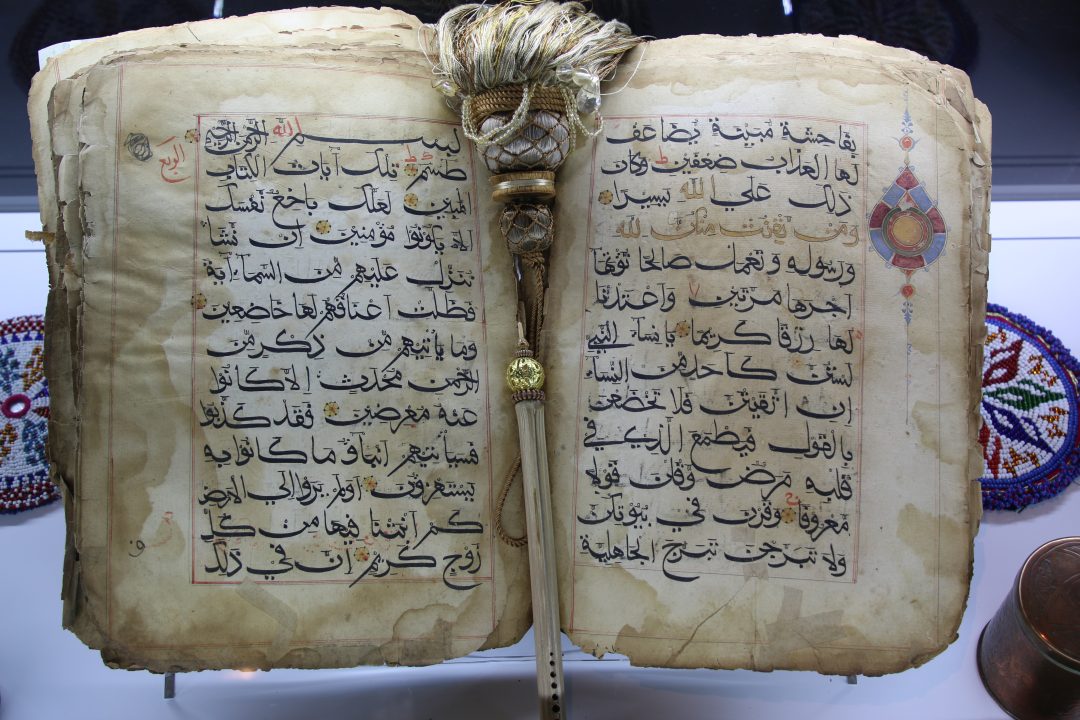 بفاحشة مبينة يضاعف
لها العذاب ضعفين وكان
ذلك على الله يسيرا
ومن يقنت منكن لله
ورسوله وتعمل صالحا نؤتها
اجرها مرتين واعتدنا
لها رزقا كريما يا نساء النبي
لستن كاحد من النساء
ان اتقيتن فلا تخضعن
بالقول فيطمع الذي في
قلبه مرض وقلن قولا
معروفا وقرن في بيوتكن
ولا تبرجن تبرج الجاهلية
بسم الله الرحمن الرحيم
الربع
طسم تلك آيات الكتاب
المبين لعلك باخع نفسك
الا يكونوا مؤمنين ان نشأ
ننزل عليهم من السماء آية
فظلت اعناقهم لها خاضعين
وما يأتيهم من ذكر من
الرحمن محدث الا كانوا
عنه معرضين فقد كذبوا
فسيأتيهم انباؤ ما كانوا به
يستهزؤن اولم يروا الى الارض
كم انبتنا فيها من كل
زوج كريم ان في ذلك